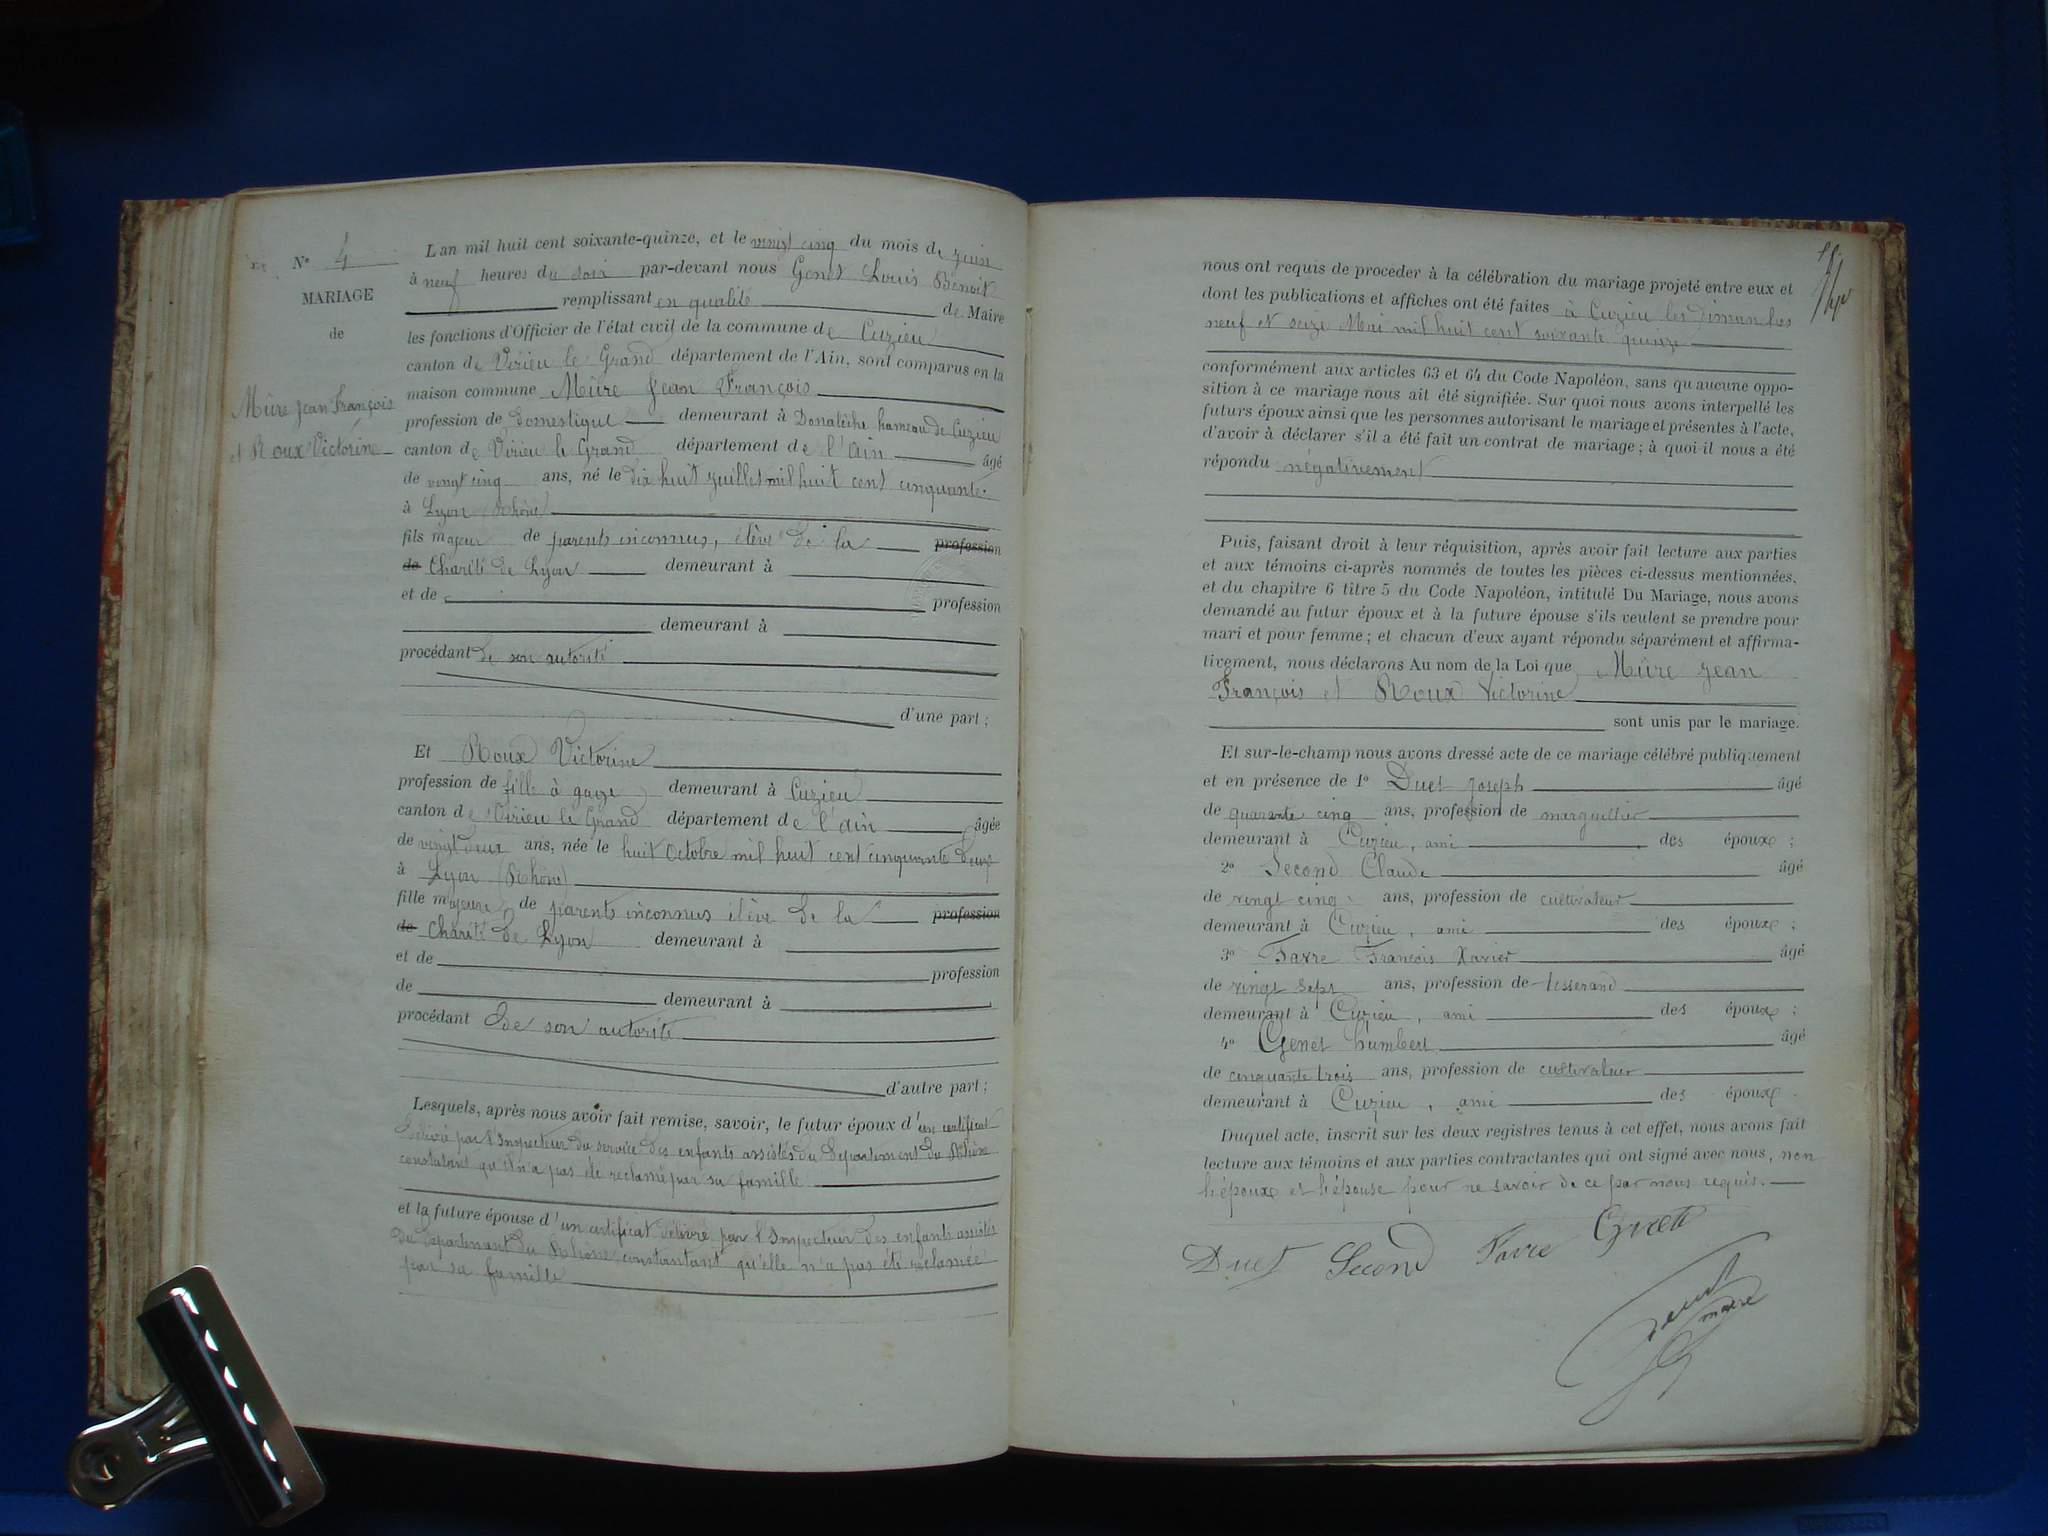 N° 4
MARIAGE
de
Mûre Jean François
et Roux Victorine
L'an mil huit cent soixante-quinze, et le vingt cinq du mois de juin
à neuf heures du soir par-devant nous Genet Louis Benoit
remplissant en qualité de Maire
les fonctions d'Officier de l'état civil de la commune de Cuzieu
canton de Virieu le Grand département de l'Ain, sont comparus en la
maison commune Mûre Jean François
profession de Domestique demeurant à hameau de Cuzieu
canton de Virieu le Grand département de l'Ain âgé
de vingt cinq ans, né le dix huit juillet mil huit cent cinquante
à Lyon (Rhône)
fils majeur de parents inconnus, élève de la profession
de Charité de Lyon demeurant à
et de profession
demeurant à
procédant de son autorité
d'une part ;
Et Roux Victorine
profession de fille à gage demeurant à Cuzieu
canton de Virieu le Grand département de l'Ain âgée
de vingt deux ans, née le huit Octobre mil huit cent cinquante deux
à Lyon (Rhône)
fille majeure de parents inconnus élève de la profession
de Charité de Lyon demeurant à
et de profession
de demeurant à
procédant de son autorité
d'autre part ;
Lesquels, après nous avoir fait remise, savoir, le futur époux d'un certificat
délivré par l'Inspecteur du service des enfants assistés du Département du Rhône
constatant qu'il n'a pas été reclamé par sa famille
et la future épouse d'un certificat délivré par l'Inspecteur des enfants assistés
du Département du Rhône constantant qu'elle n'a pas été reclamée
par sa famille
nous ont requis de procéder à la célébration du mariage projeté entre eux et
dont les publications et affiches ont été faites à Cuzieu les dimanches
neuf et seize Mai mil huit cent soixante quinze
conformément aux articles 63 et 64 du Code Napoléon, sans qu'aucune oppo-
sition à ce mariage nous ait été signifiée. Sur quoi nous avons interpellé les
futurs époux ainsi que les personnes autorisant le mariage et présentes à l'acte,
d'avoir à déclarer s'il a été fait un contrat de mariage ; à quoi il nous a été
répondu négativement
Puis, faisant droit à leur réquisition, après avoir fait lecture aux parties
et aux témoins ci-après nommés de toutes les pièces ci-dessus mentionnées,
et du chapitre 6 titre 5 du Code Napoléon, intitulé Du Mariage, nous avons
demandé au futur époux et à la future épouse s'ils veulent se prendre pour
mari et pour femme ; et chacun d'eux ayant répondu séparément et affirma-
tivement, nous déclarons Au nom de la Loi que Mûre Jean
François et Roux Victorine
sont unis par le mariage.
Et sur-le-champ nous avons dressé acte de ce mariage célébré publiquement
et en présence de 1° Duet Joseph âgé
de quarante cinq ans, profession de marguillier
demeurant à Cuzieu, ami des époux ;
2° Second Claude âgé
de vingt cinq ans, profession de cultivateur
demeurant à Cuzieu, ami des époux ;
3° Favre François Xavier âgé
de vingt sept ans, profession de tisserand
demeurant à Cuzieu, ami des époux ;
4° Genet humbert âgé
de cinquante trois ans, profession de cultivateur
demeurant à Cuzieu, ami des époux.
Duquel acte, inscrit sur les deux registres tenus à cet effet, nous avons fait
lecture aux témoins et aux parties contractantes qui ont signé avec nous, non
l'époux et l'épouse pour ne savoir de ce par nous requis.
Duet Second Favre
maire